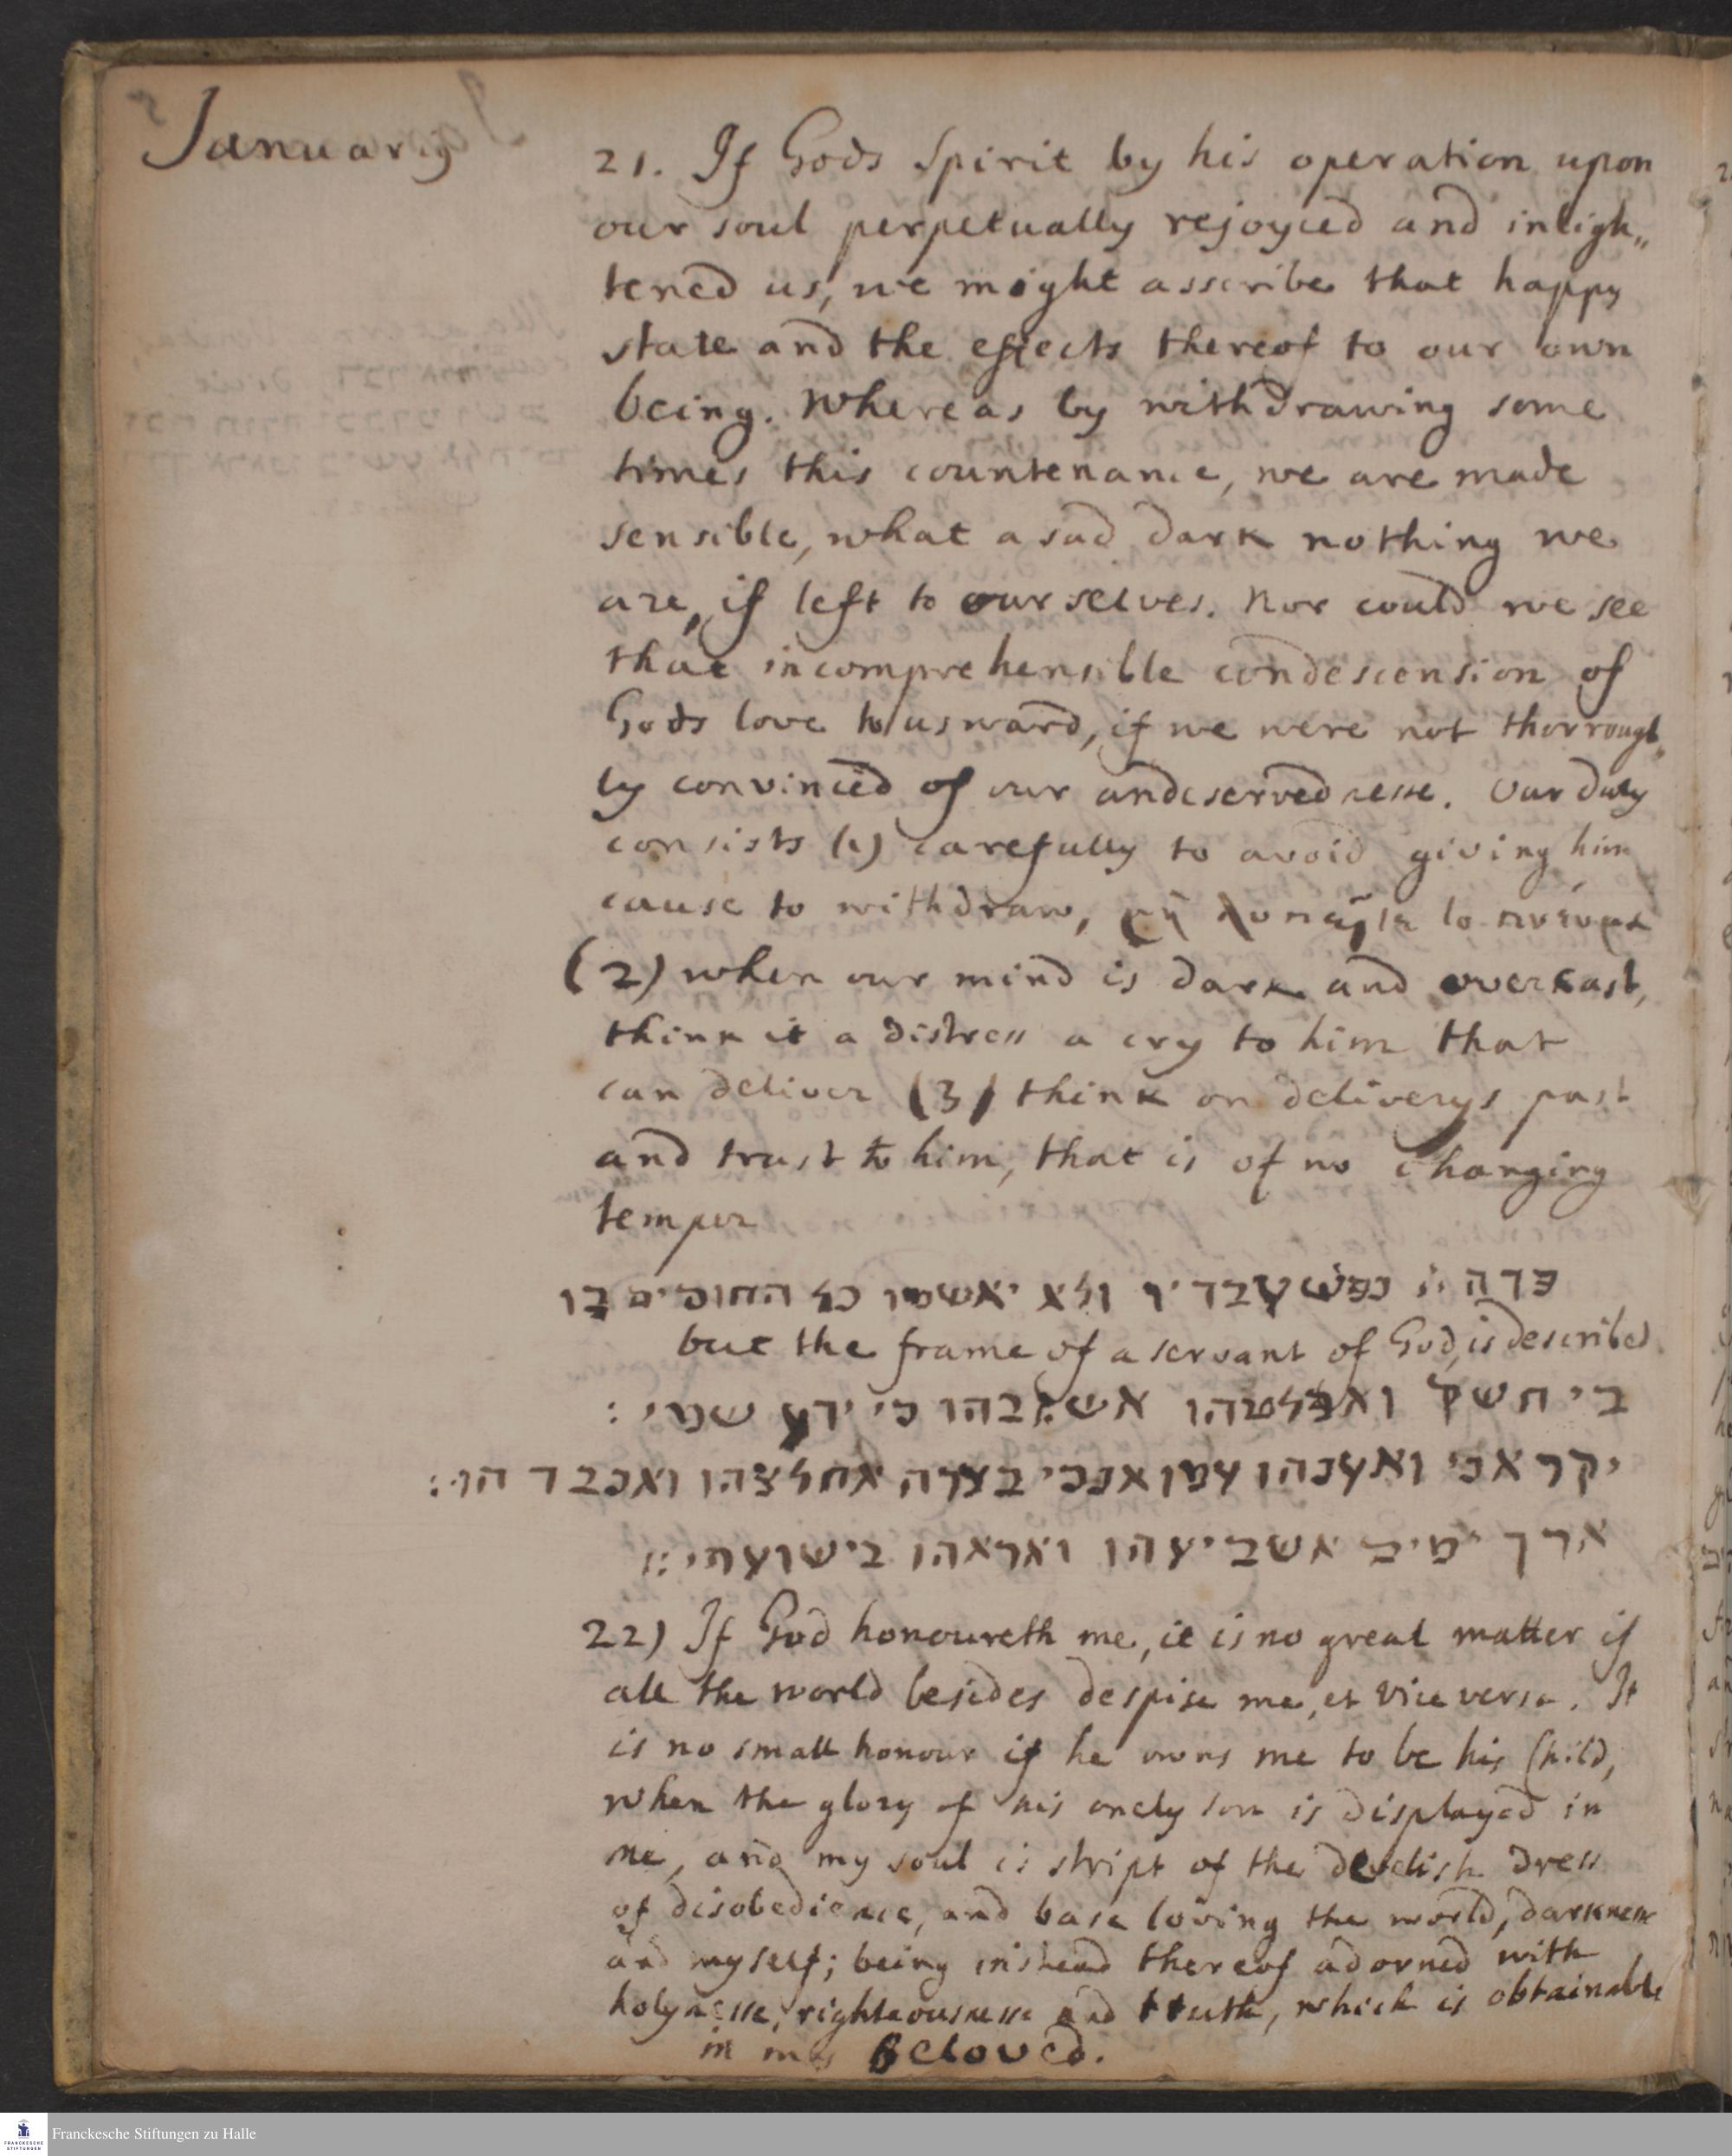 January
21. If Gods Spirit by his operation upon
our soul perpetually rejoyced and inligh„
tened us, we might asscribe that happy
state and the effects thereof to our own
being. Whereas by withdrawing some
times this countenance, we are made
sensible, what a sad dark nothing we
are, if left to ourselves. Nor could we see
that incomprehensible condescension of
Gods love to usward, if we were not thorrough„
ly convinced of our undeservednesse. Our duty
consists (1) carefully to avoid giving him
cause to withdraw, μὴ λυπεῖτε το πνεῦμα
(2) when our mind is dark and overcast,
think it a distress a cry to him that
can deliver (3) think on deliverys past
and trust to him, that is of no changing
temper
פדה יי נפש עבדיו ולא יאשמו כל החוסים בו
but the frame of a servant of God is described
בי חשק ואפלטהו אשגבהו כי ידע שמי :
יקראני ואענהו עמו אנכי בצרה אחלצהו ואכבדהו:
ארך ימים אשביעהו ואראהו בישועתי::
22) If God honoureth me, it is no great matter if
all the world besides despise me, et vice versa. It
is no small honour if he owns me to be his Child,
when the glory of his onely son is displayed in
me, and my soul is stript of the develish dress
of disobedience, and base loving the world, darkness
and myself; being instead thereof adorned with
holynesse, righteousnesse and truth, which is obtainable
in my Beloved.
Franckesche Stiftungen zu Halle
FRANCKESCHE
STIFTUNGEN